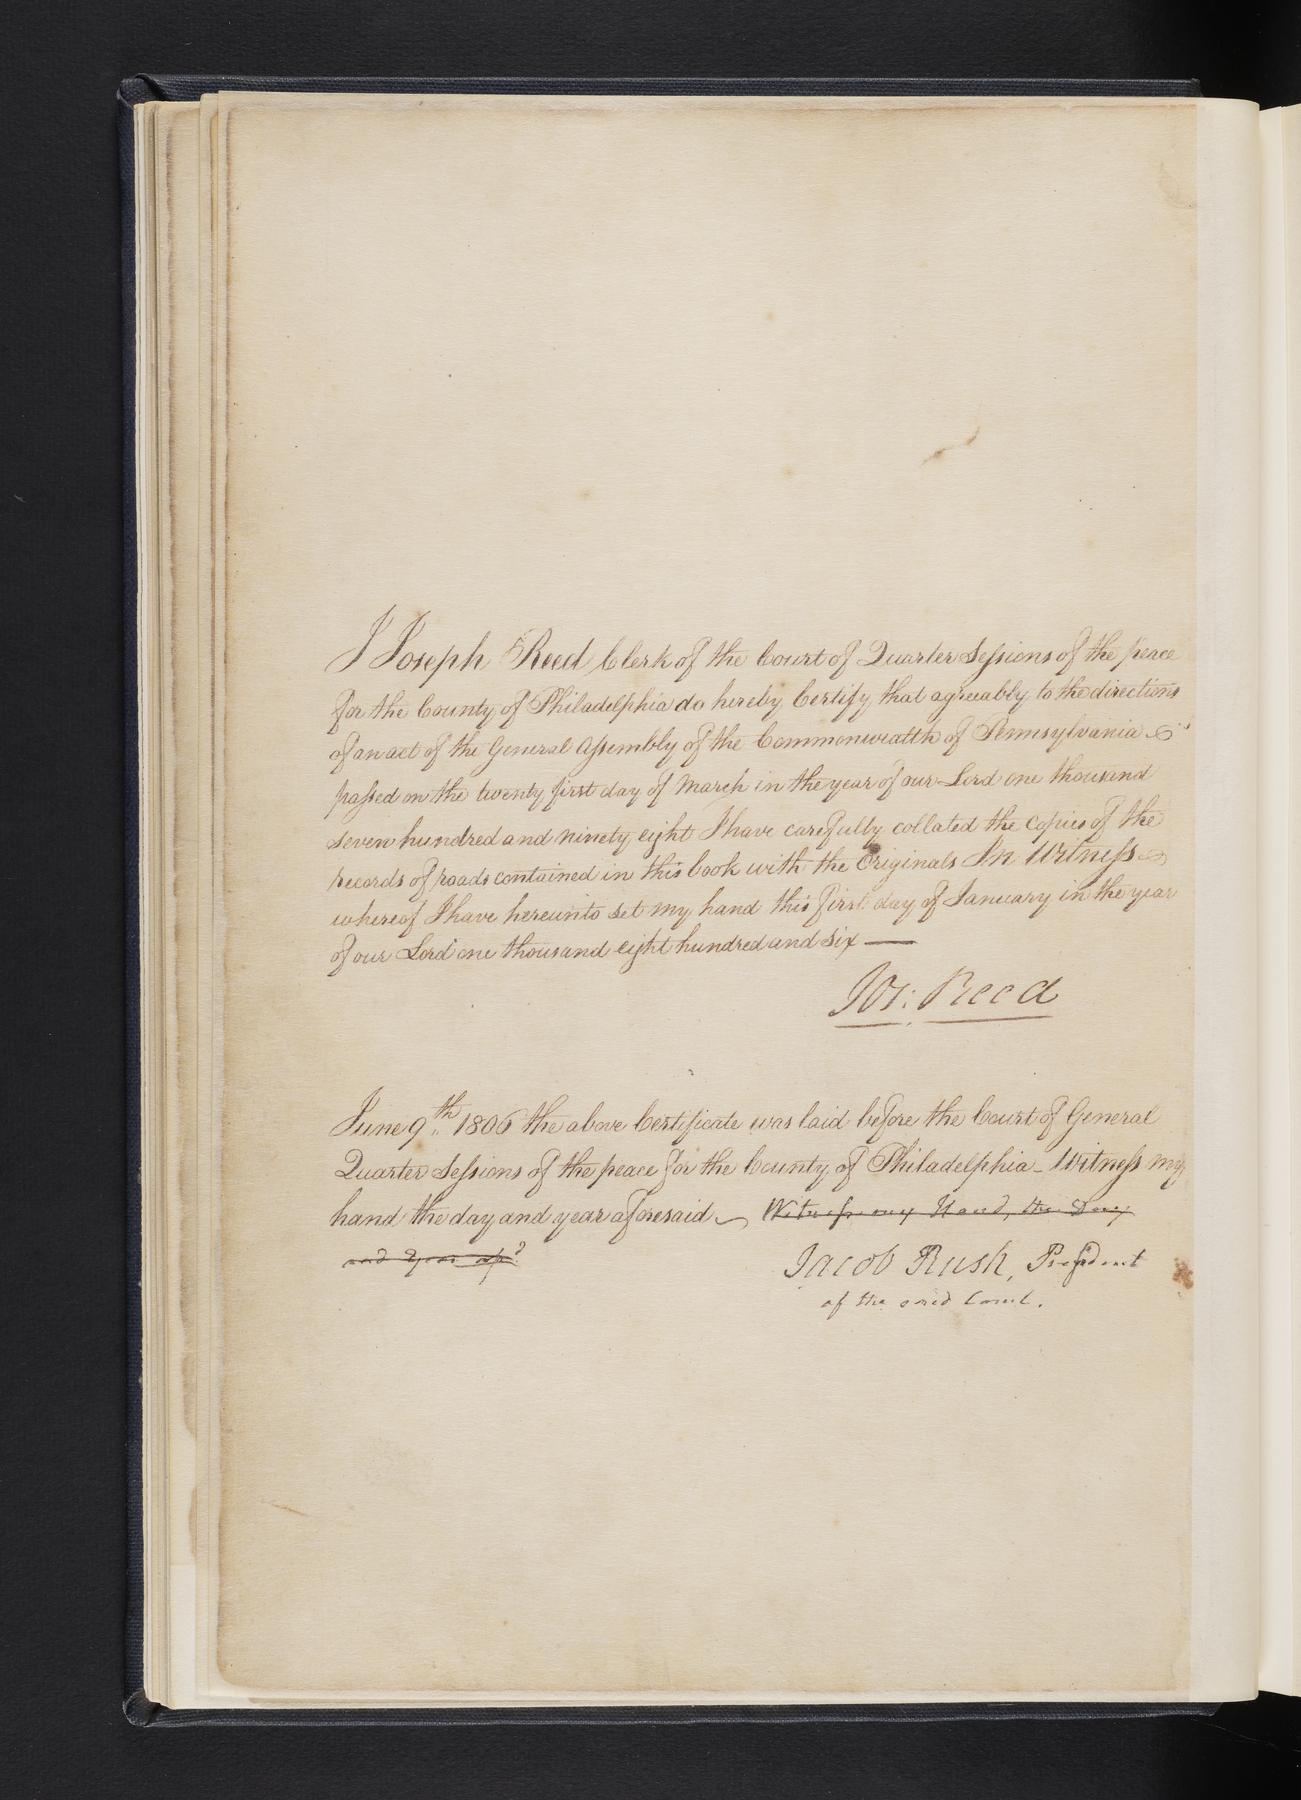 I Joseph Reed Clerk of the Court of Quarter Sessions of the peace
for the County of Philadelphia do hereby Certify that agreeably to the directions
of an act of the General Assembly of the Commonwealth of Pennsylvania
passed on the twenty first day of March in the year of our Lord one thousand
seven hundred and ninety eight I have carefully collated the copies of the
records of roads contained in this book with the Originals In Witness
whereof I have hereunto set my hand this first day of January in the year
of our Lord one thousand eight hundred and six —
Jos: Reed
June 9th 1806 the above Certificate was laid before the Court of General
Quarter Sessions of the peace for the County of Philadelphia - Witness my
hand the day and year aforesaid Witness my Hand, the Day
and Year afs.d
Jacob Rush, President
of the said Court.